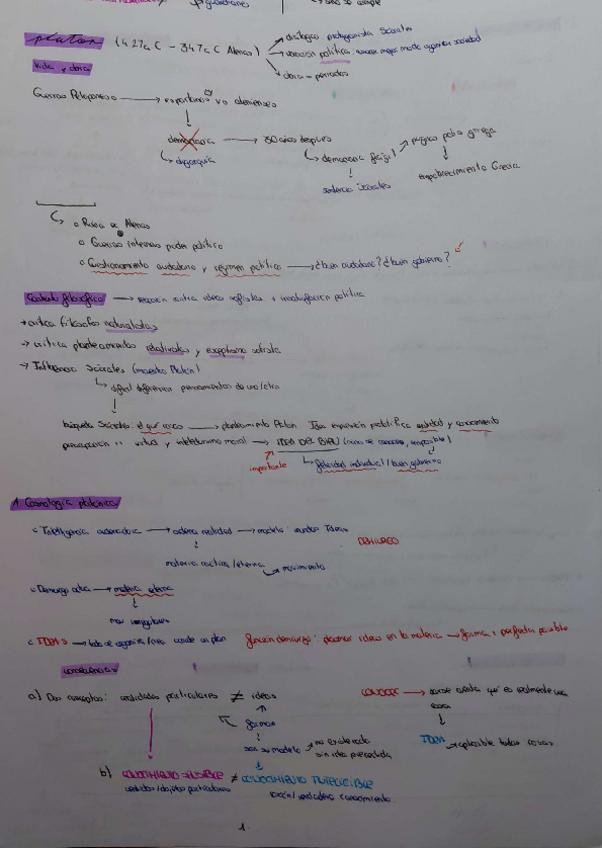 platón (427a.C - 347a.C Atenas) → dialogos protagonista Sócrates
→ vocación política: conocer mejor modo organizar sociedad
→ obra = periodos
Vida y obra
Guerras Peloponeso → espartanos vs atenienses
democracia → 30 años después
↳ oligarquía
↳ democracia frágil → pugnas polis griegas
sentencia Sócrates
empobrecimiento Grecia
↳ o Ruina de Atenas
o Guerras internas poder político
o Cuestionamiento ciudadano y régimen político → ¿buen ciudadano? ¿buen gobierno?
Contexto filosófico → reacción crítica ideas sofistas + investigación política
→ critica filósofos naturalistas
→ critica planteamientos relativistas y escepticismo sofista
→ Influencia Sócrates (maestro Platón)
↳ difícil diferenciar pensamientos de uno/otro
búsqueda Sócrates: el qué cosas → planteamiento Platón
realidad y conocimiento
preocupación virtud y intelectualismo moral → IDEA DEL BIEN
importante
↳ felicidad individual / buen gobierno
A. Cosmología platónica
Inteligencia ordenadora → ordena realidad → modelo: mundo Ideas
DEMIURGO
materia caótica/eterna → movimiento
Demiurgo actúa → materia eterna
IDEAS → un plan función demiurgo: plasmar ideas en la materia → forma + perfecta posible
consecuencias
a) Dos conceptos: realidades particulares ≠ ideas
CONOCER → darse cuenta qué es realmente una
cosa
formas
son su modelo → no existirían
sin idea precedida
IDEA → aplicable todas cosas
b) CONOCIMIENTO SENSIBLE ≠ CONOCIMIENTO INTELIGIBLE
sentidos/objetos particulares
razón/verdadero conocimiento
1.